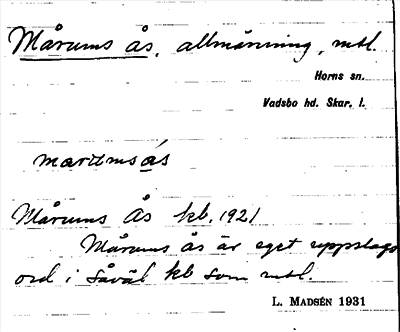 Mårums ås, allmänning, mtl.
Horns sn.
Vadsbo hd. Skar. l.
marumsås
Mårums Ås kb. 1921
Mårums ås är eget uppslags
ord i såväl kb som mtl.
L. MADSÉN 1931